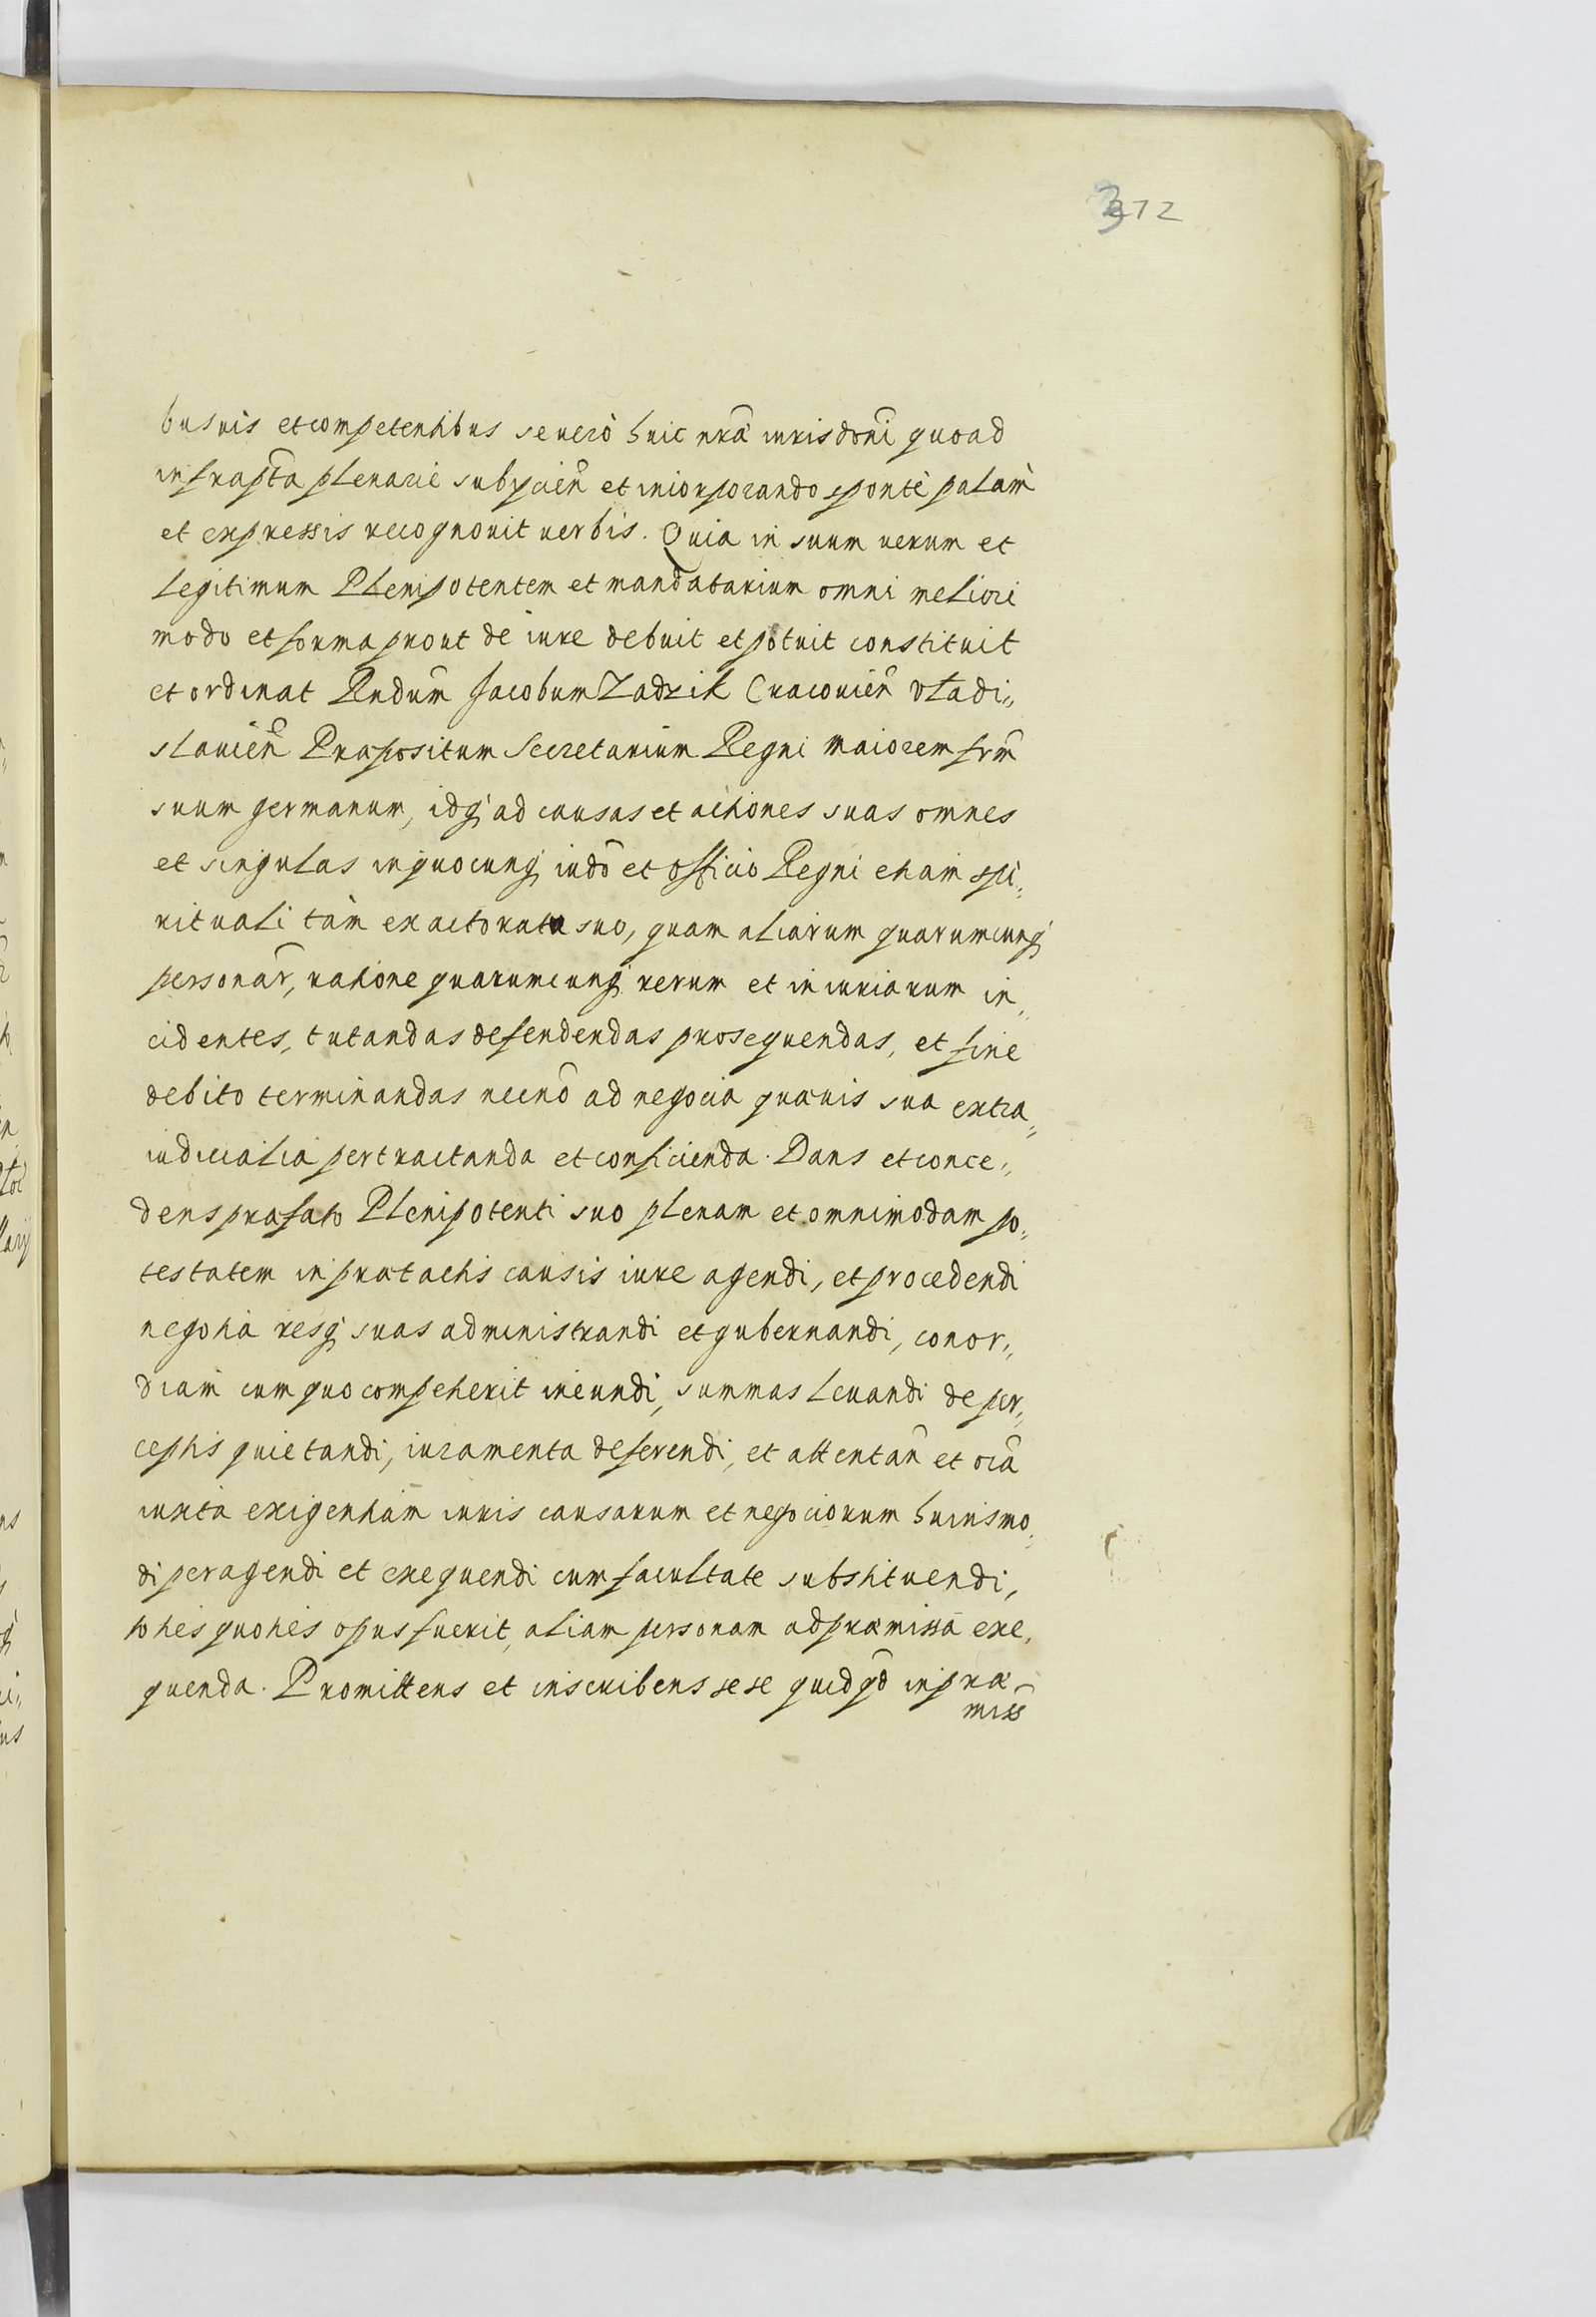 372
busuis et competentibus se uerò huic nrã iurisdoni quoad
infrapta plenariè subycien et incorporando spontè palàm
et expressis recognouit uerbis. Quia in suum uerum et
legitimum Plenipotentem et mandatarium omni meliori
modo et forma prout de iure debuit et potuit constituit
et ordinat Rndum Jacobum Zadzik Cracouien Vladi„
slauien Præpositum Secretarium Regni maiorem frm
suum germanum, idq ad causas et actiones suas omnes
et singulas in quocunq iudo et Officio Regni etiam spi„
rituali tàm ex actoratu suo, quam aliarum quarumcunq
personar, ratione quarumcunq rerum et iniuriarum in„
cidentes, tutandas defendendas prosequendas, et fine
debito terminandas necno ad negocia quæuis sua extra„
iudicialia pertractanda et conficienda. Dans et conce„
dens præfato Plenipotenti suo plenam et omnimodam po„
testatem in prætactis causis iure agendi, et procedendi
negotia resq suas administrandi et gubernandi, concor„
diam cum quo competierit ineundi, summas leuandi de per„
ceptis quietandi, iuramenta deferendi, et attentan et oia
iuxta exigentiam iuris causarum et negociorum huiusmo„
di peragendi et exequendi cum facultate substituendi,
toties quoties opus fuerit, aliam personam ad præmissa exe„
quenda. Promittens et inscribens sese quidqd in præ„
miss